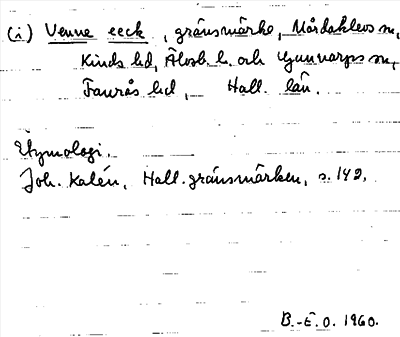 (i) Venne eeck, gränsmärke, Mårdaklevs sn,
Kinds hd, Älvsb. l. och Gunnarps sn,
Faurås hd, Hall. län.
Etymologi.
Joh. Kalén, Hall. gränsmärken, s. 142.
B.-E.O. 1960.